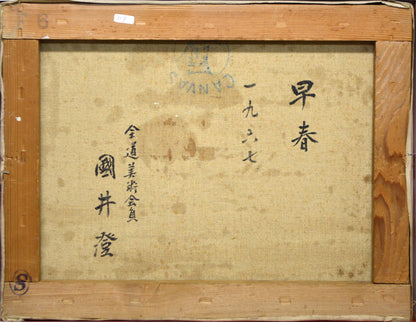 早春
一九六七
全道美術会員
國井澄
CANVAS
F6
S